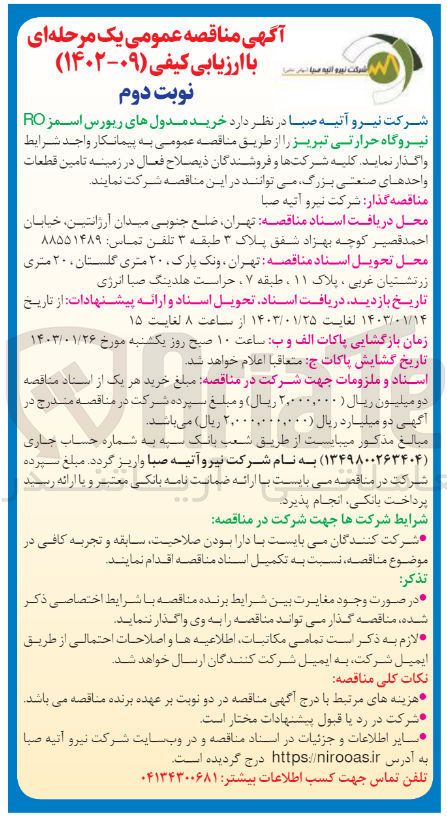 آگهی مناقصه عمومی یک مرحله‌ای
با ارزیابی کیفی (۰۹-۱۴۰۲)
نوبت دوم
شرکت نیرو آتیه صبا
شرکت نیرو آتیه صبا در نظر دارد خرید مدول های ریورس اسمز RO
نیروگاه حرارتی تبریز را از طریق مناقصه عمومی به پیمانکار واجد شرایط
واگذار نماید. کلیه شرکت‌ها و فروشندگان ذیصلاح فعال در زمینه تامین قطعات
واحدهای صنعتی بزرگ، می توانند در این مناقصه شرکت نمایند.
مناقصه‌گذار: شرکت نیرو آتیه صبا
محل دریافت اسناد مناقصه: تهران، ضلع جنوبی میدان آرژانتین، خیابان
احمدقصیر کوچه بهزاد شفق پلاک ۳ طبقه ۳ تلفن تماس: ۸۸۵۵۱۴۸۹
محل تحویل اسناد مناقصه: تهران، ونک پارک، ۲۰ متری گلستان، ۲۰ متری
زرتشتیان غربی، پلاک ۱۱، طبقه ۷، حراست هلدینگ صبا انرژی
تاریخ بازدید، دریافت اسناد، تحویل اسناد و ارائه پیشنهادات: از تاریخ
۱۴۰۳/۰۱/۱۴ لغایت ۱۴۰۳/۰۱/۲۵ از ساعت ۸ لغایت ۱۵
زمان بازگشایی پاکات الف و ب: ساعت ۱۰ صبح روز یکشنبه مورخ ۱۴۰۳/۰۱/۲۶
تاریخ گشایش پاکات ج: متعاقبا اعلام خواهد شد.
اسناد و ملزومات جهت شرکت در مناقصه: مبلغ خرید هر یک از اسناد مناقصه
دو میلیون ریال (۲,۰۰۰,۰۰۰ ریال) و مبلغ سپرده شرکت در مناقصه مندرج در
آگهی دو میلیارد ریال (۲,۰۰۰,۰۰۰,۰۰۰ ریال) می‌باشد.
مبالغ مذکور میبایست از طریق شعب بانک سپه به شماره حساب جاری
(۱۳۴۹۸۰۰۲۶۳۴۰۴) به نام شرکت نیرو آتیه صبا واریز گردد. مبلغ سپرده
شرکت در مناقصه می بایست با ارائه ضمانت نامه بانکی معتبر و یا ارائه رسید
پرداخت بانکی، انجام پذیرد.
شرایط شرکت ها جهت شرکت در مناقصه:
●شرکت کنندگان می بایست با دارا بودن صلاحیت، سابقه و تجربه کافی در
موضوع مناقصه، نسبت به تکمیل اسناد مناقصه اقدام نمایند.
تذکر:
●در صورت وجود مغایرت بین شرایط برنده مناقصه با شرایط اختصاصی ذکر
شده، مناقصه گذار می تواند مناقصه را به وی واگذار ننماید.
●لازم به ذکر است تمامی مکاتبات، اطلاعیه ها و اصلاحات احتمالی از طریق
ایمیل شرکت، به ایمیل شرکت کنندگان ارسال خواهد شد.
نکات کلی مناقصه:
●هزینه های مرتبط با درج آگهی مناقصه در دو نوبت بر عهده برنده مناقصه می باشد.
●شرکت در رد یا قبول پیشنهادات مختار است.
●سایر اطلاعات و جزئیات در اسناد مناقصه و در وب‌سایت شرکت نیرو آتیه صبا
به آدرس https://nirooas.ir درج گردیده است.
تلفن تماس جهت کسب اطلاعات بیشتر: ۰۴۱۳۴۳۰۰۶۸۱